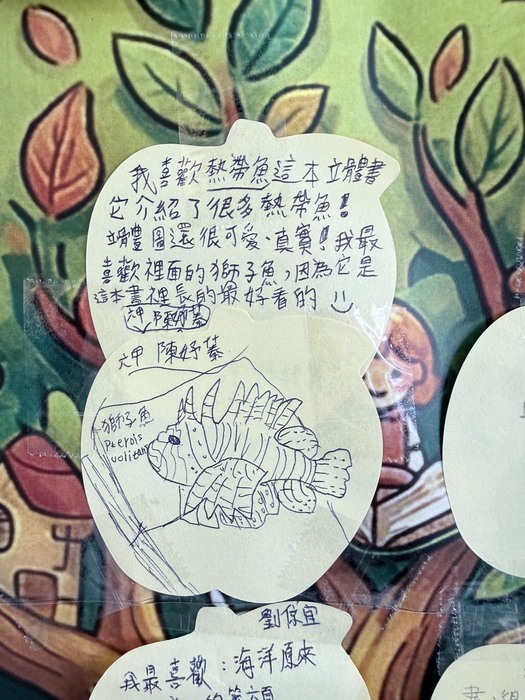 我喜歡熱帶魚這本立體書
它介紹了很多熱帶魚!
立體圖還很可愛、真實!我最
喜歡裡面的獅子魚,因為它是
這本書裡長的最好看的
六甲 陳妤蓁
獅子魚
Pterois
volitans
劉保宜
我最喜歡:海洋原來